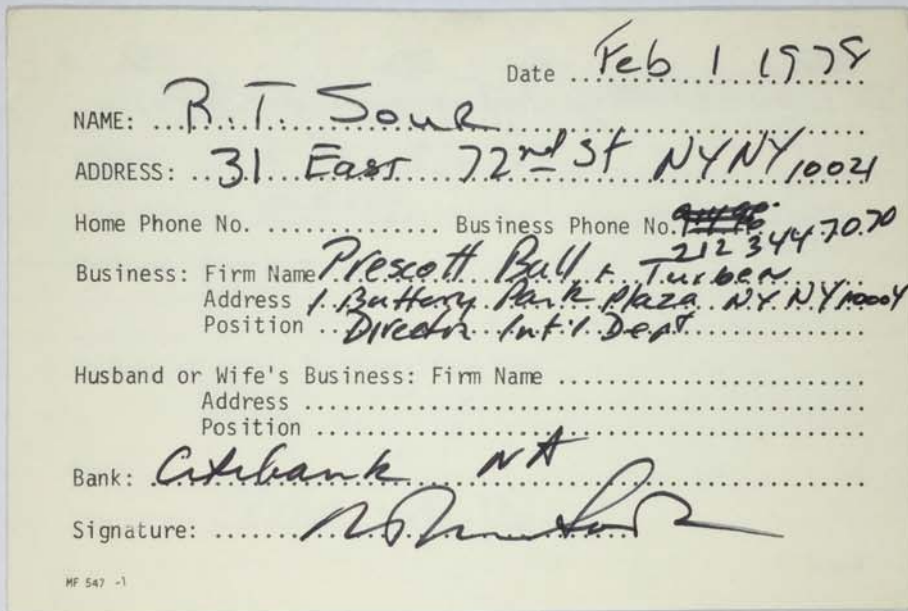 Date ..Feb 1 1978
NAME: ...R.T. Sour
ADDRESS: ..31 East 72nd St NY NY 10021
Home Phone No. ............... Business Phone No. 212 344 7070
Business: Firm Name Prescott Ball & Turben
Address 1 Battery Park Plaza NY NY 10004
Position ..Director Int'l Dept
Husband or Wife's Business: Firm Name ...........................
Address .................................................
Position ................................................
Bank: Citibank NA
Signature: .......
MF 547 -1